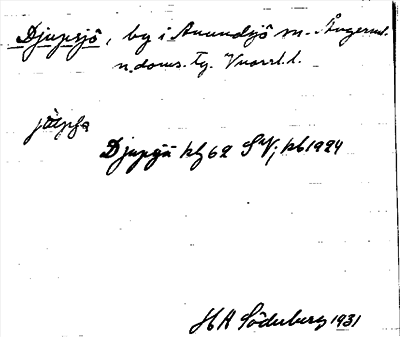 Djupsjö, by i Anundsjö sn. Ångerml.
n. doms. tg. Vnorrl. l.
Djupsjö kbg 62 SV; kb 1924
HA Söderberg 1931